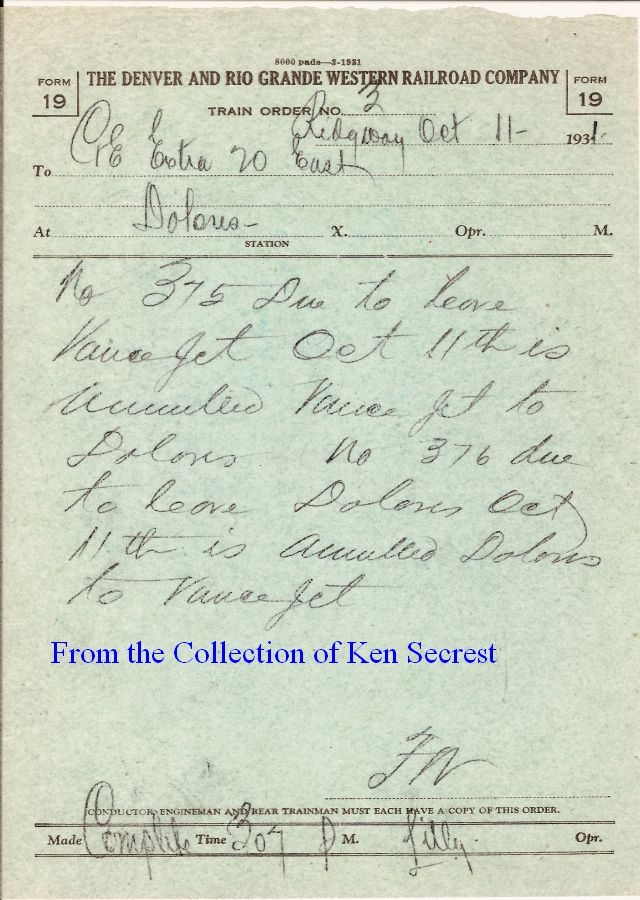 8000 pads—3-1931
FORM 19 THE DENVER AND RIO GRANDE WESTERN RAILROAD COMPANY FORM 19
TRAIN ORDER NO. 3
Ridgway Oct 11- 1931
To C&E Extra 20 East
At Dolores- X. Opr. M.
STATION
No 375 Due to leave
Vance Jct Oct 11th is
annulled Vance Jct to
Dolores No 376 due
to leave Dolores Oct
11th is annulled Dolores
to Vance Jct
From the Collection of Ken Secrest
CONDUCTOR, ENGINEMAN AND REAR TRAINMAN MUST EACH HAVE A COPY OF THIS ORDER.
Made Complete Time 307 P M. Lilly Opr.